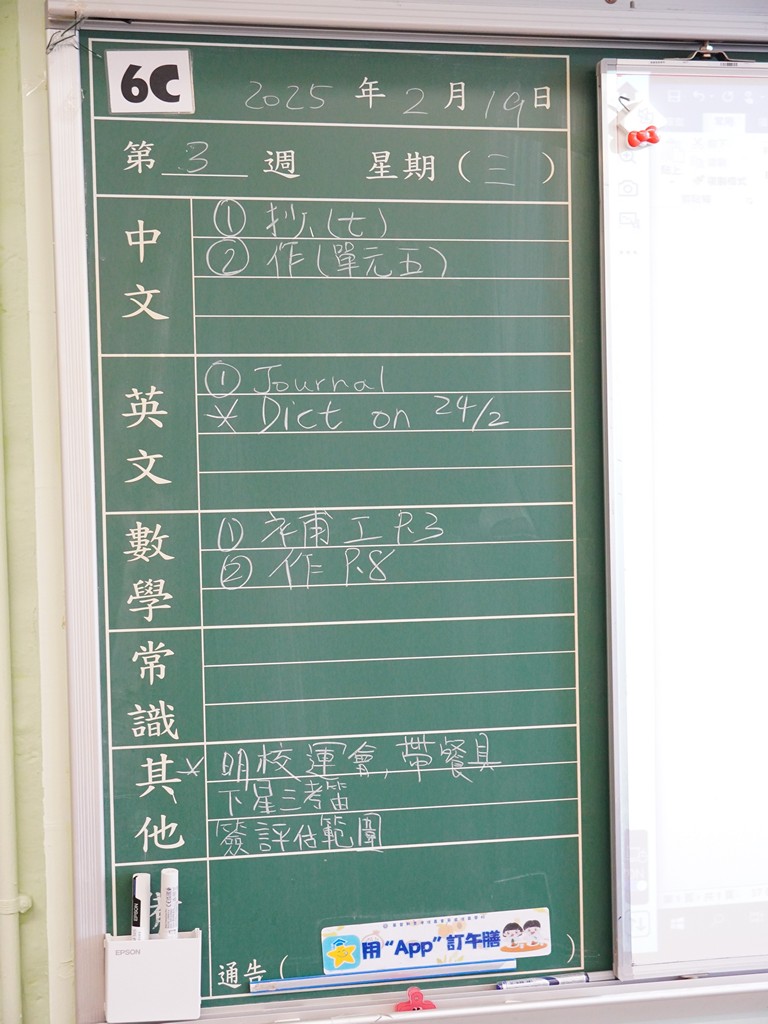 6C
2025 年 2 月 19 日
第 3 週 星期（三）
中文
① 抄(七)
② 作(單元五)
英文
① Journal
* Dict on 24/2
數學
① 補工 P.3
② 作 P.8
常識
其他
* 明校運會,帶餐具
下星三考笛
簽評估範圍
用“App”訂午膳
通告（ ）
EPSON
EPSON